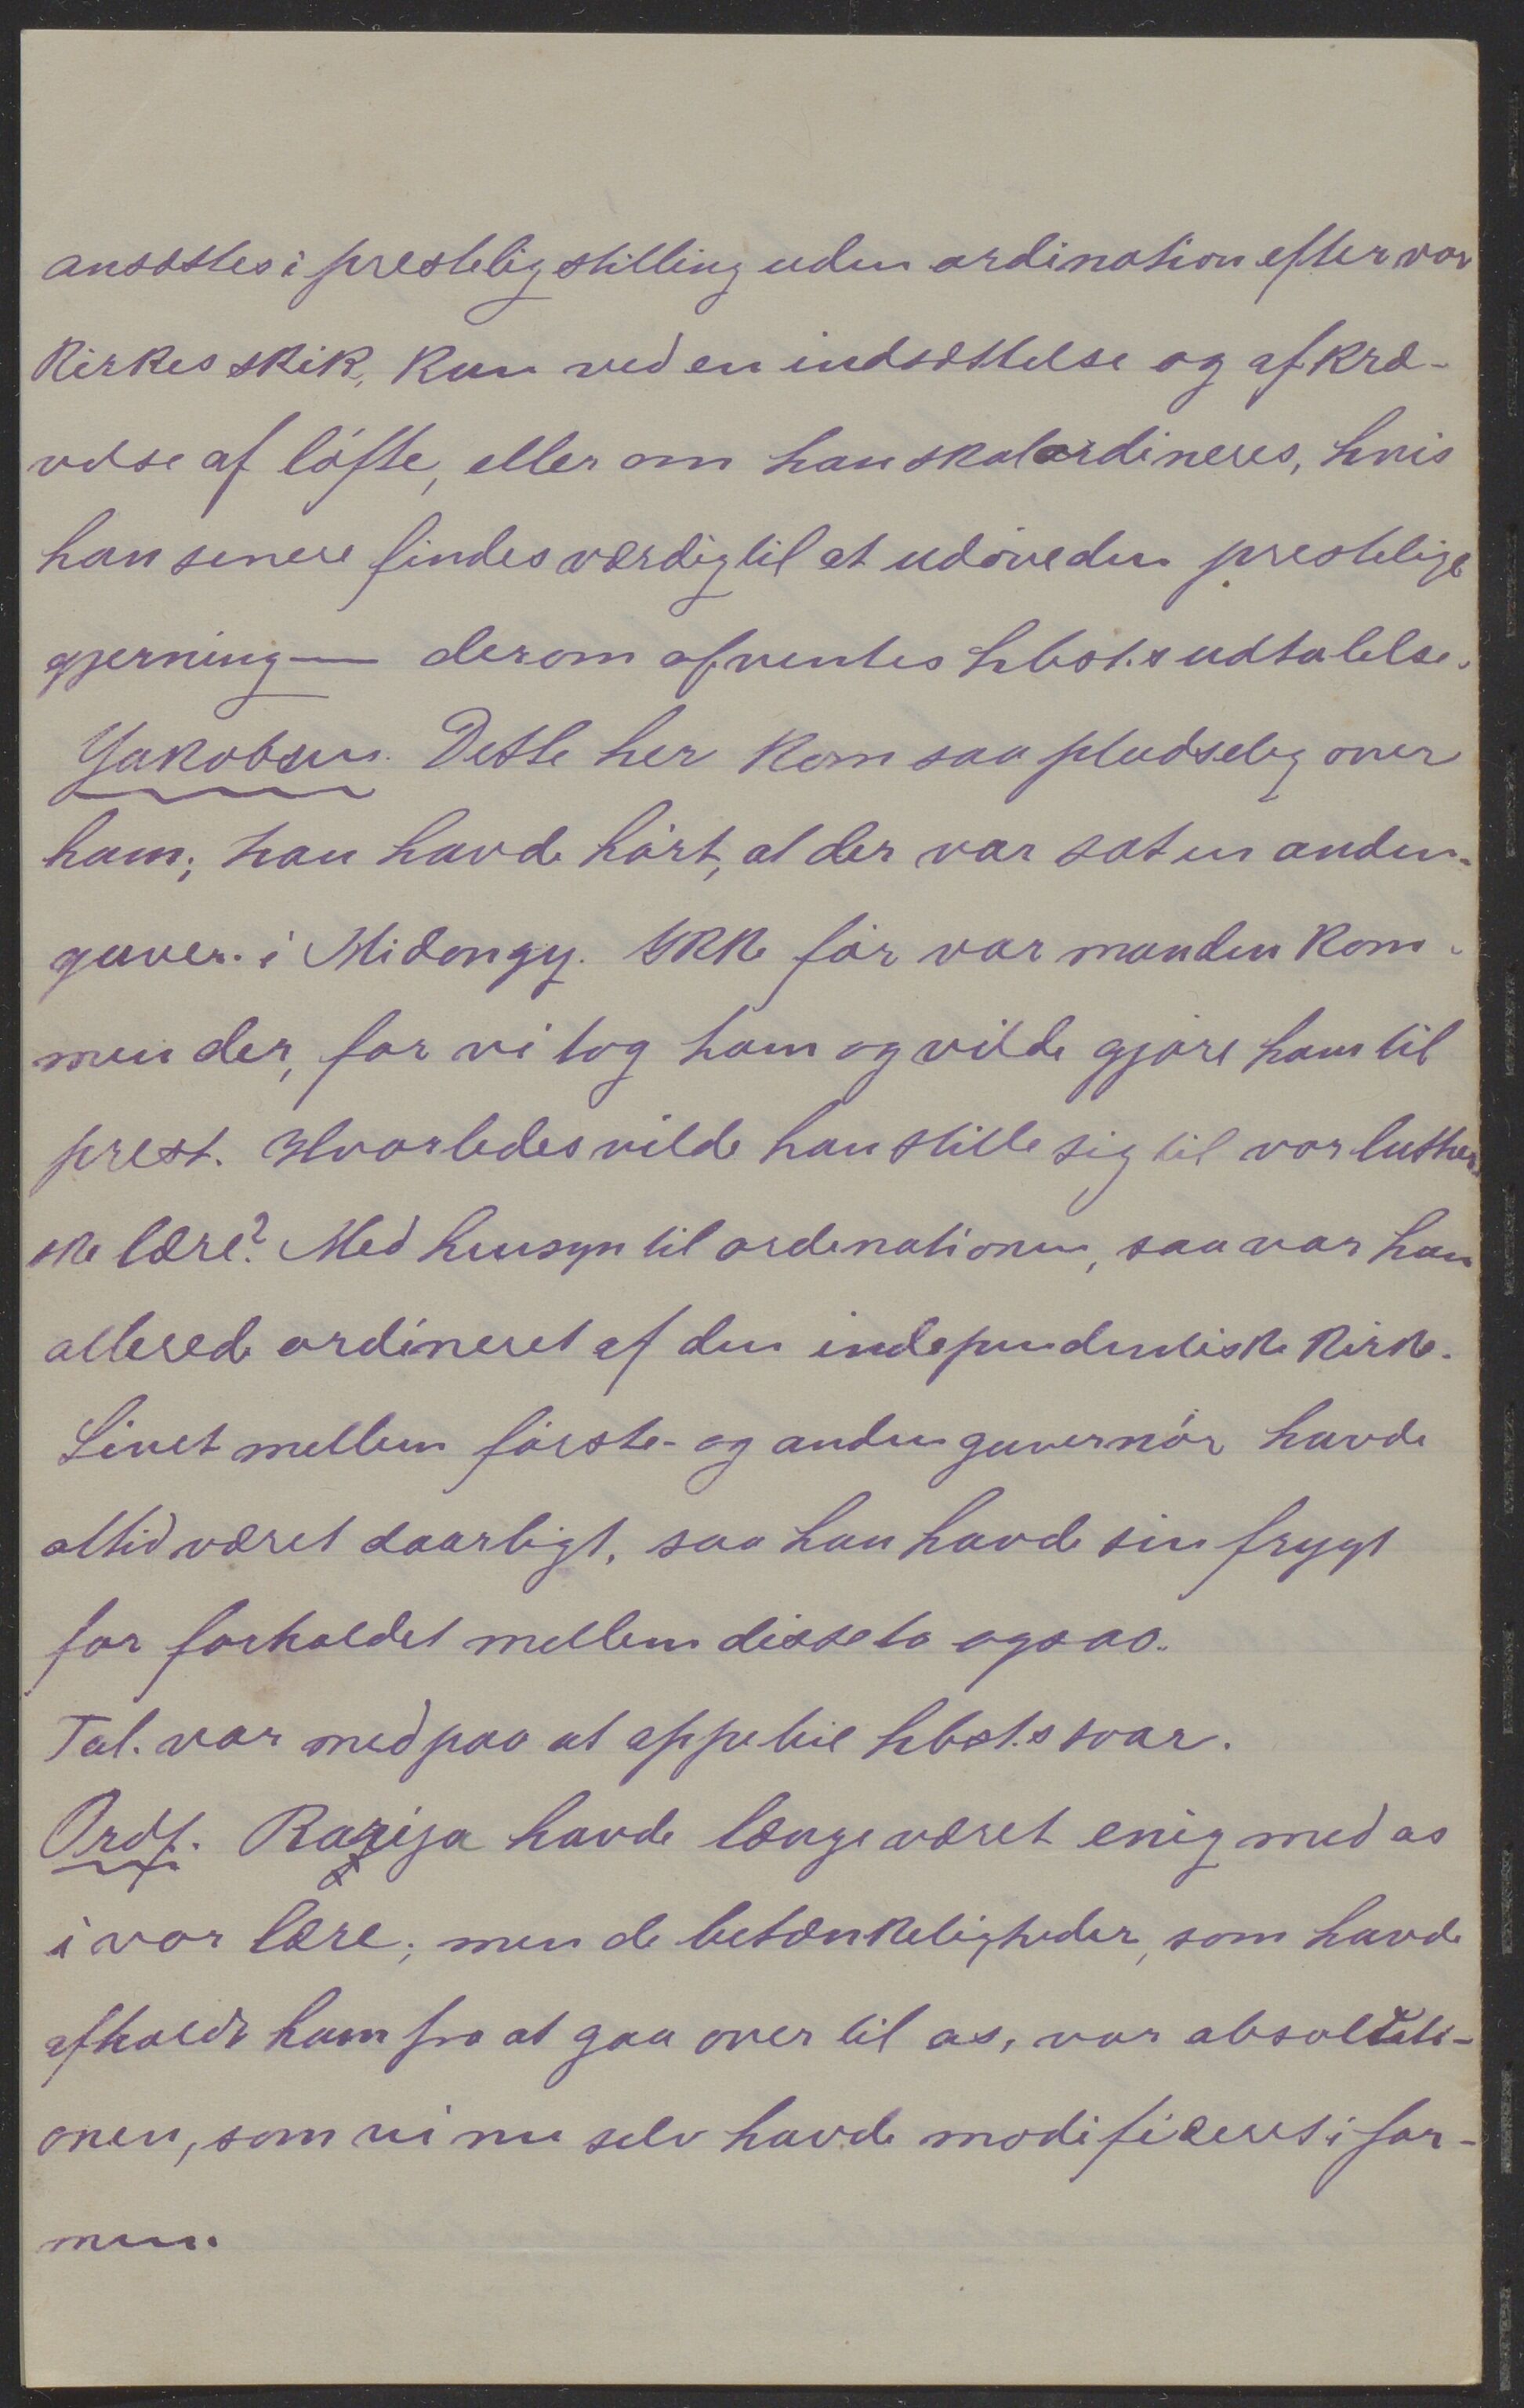 ansættes i prestelig stilling uden ordination efter vor
kirkes skik, kun ved en indsættelse og afkræ-
velse af løfte, eller om han skal ordineres, hvis
han senere findes værdig til at udøve den prestelige
gjerning — derom afventes hbst.s udtalelse.
Jakobsen. Dette her kom saa pludselig over
ham; han havde hørt, at der var sat en anden-
guver. i Midongy. Ikke før var manden kom-
men der, før vi tog ham og vilde gjøre ham til
prest. Hvorledes vilde han stille sig til vor luther-
ske lære? Med hensyn til ordinationen, saa var han
allerede ordineret af den independentiske kirke.
Livet mellem første- og anden guvernør havde
altid været daarligt, saa han havde sin frygt
for forholdet mellem disse to ogsaa.
Tal. var med paa at oppebie hbst.s svar.
Ordf. Razija havde længe været enig med os
i vor lære; men de betænkeligheder, som havde
afholdt ham fra at gaa over til os, var absoluti-
onen, som vi nu selv havde modificeret i for-
men.